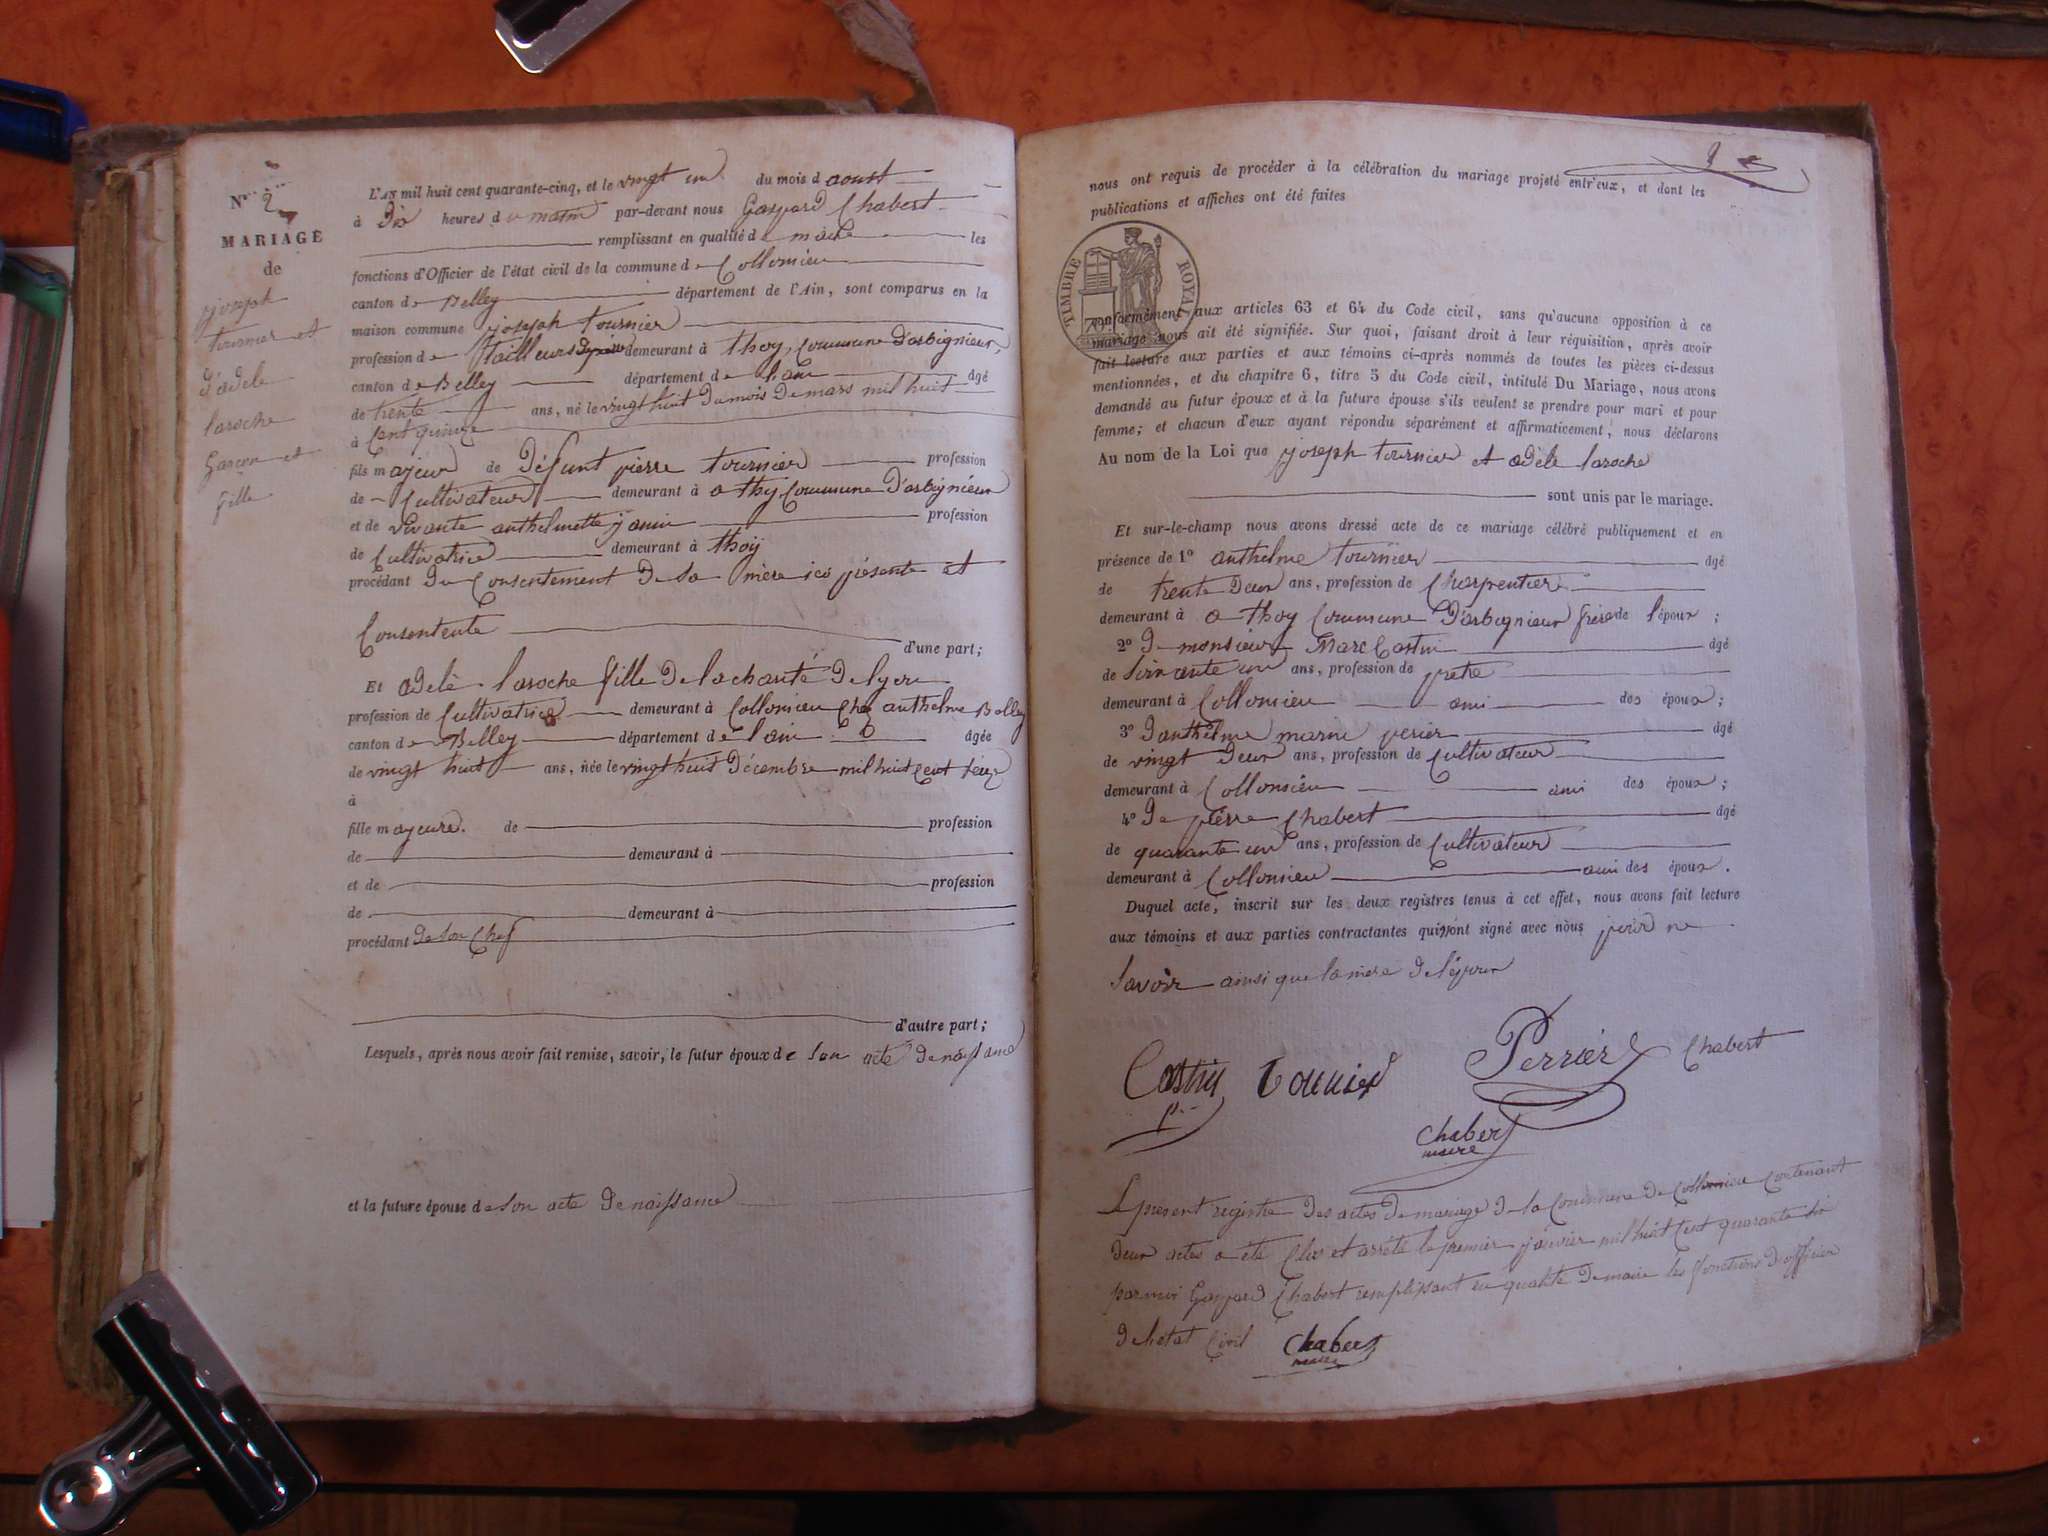 N° 2
MARIAGE
de
joseph
tournier et
d'adele
laroche
Garcon et
fille
L'AN mil huit cent quarante-cinq, et le vingt un du mois d aoust
à Dix heures du matin par-devant nous Gaspard Chabert
remplissant en qualité de maire les
fonctions d'Officier de l'état civil de la commune de Collomieu
canton de Belley département de l'Ain, sont comparus en la
maison commune joseph tournier
profession de tailleurs de demeurant à thoy, Commune D'arbignieu,
canton de Belley département de l'ain âgé
de trente ans, né le vingt huit du mois De mars mil huit
à Cent quinze
fils majeur de Défunt pierre tournier profession
de Cultivateur demeurant à a thoy Commune D'arbignieu
et de vivante anthelmette janin profession
de Cultivatrice demeurant à thoÿ
procédant du Consentement De Sa mère ici présente et
Consentente d'une part;
Et adelè laroche fille De la charité De lyon
profession de Cultivatrice demeurant à Collomieu Chez anthelme Bolley
canton de Belley département de l'ain âgée
de vingt huit ans, née le vingt huit Décembre mil huit Cent seize
à
fille majeure. de profession
de demeurant à
et de profession
de demeurant à
procédant De Son Chef
d'autre part;
Lesquels, après nous avoir fait remise, savoir, le futur époux de Son acte De naissance
et la future épouse de Son acte De naissance
nous ont requis de procéder à la célébration du mariage projeté entr'eux, et dont les
publications et affiches ont été faites
TIMBRE ROYAL
conformément aux articles 63 et 64 du Code civil, sans qu'aucune opposition à ce
mariage nous ait été signifiée. Sur quoi, faisant droit à leur réquisition, après avoir
fait lecture aux parties et aux témoins ci-après nommés de toutes les pièces ci-dessus
mentionnées, et du chapitre 6, titre 5 du Code civil, intitulé Du Mariage, nous avons
demandé au futur époux et à la future épouse s'ils veulent se prendre pour mari et pour
femme; et chacun d'eux ayant répondu séparément et affirmaticement, nous déclarons
Au nom de la Loi que joseph tournier et adèle laroche
sont unis par le mariage.
Et sur-le-champ nous avons dressé acte de ce mariage célébré publiquement et en
présence de 1° anthelme tournier âgé
de trente Deux ans, profession de Charpentier
demeurant à a thoy Commune D'arbignieu frère de l'époux ;
2° De monsieur Marc Costin âgé
de Soixante un ans, profession de prètre
demeurant à Collomieu ami des époux ;
3° D'anthelme marin perier âgé
de vingt Deux ans, profession de Cultivateur
demeurant à Collomieu ami des époux ;
4° De pierre Chabert âgé
de quarante un ans, profession de Cultivateur
demeurant à Collomieu ami des époux.
Duquel acte, inscrit sur les deux registres tenus à cet effet, nous avons fait lecture
aux témoins et aux parties contractantes qui ont signé avec nous pour ne
Savoir ainsi que la mère De l'époux
Costin Tournier Perrier Chabert
p.
Chabert
maire
Le present registre Des actes De mariage De la Commune De Collomieu Contenant
Deux actes a été Clos et arrêté le premier janvier mil huit Cent quarante Six
par moi Gaspard Chabert remplissant en qualité De maire les fonctions D'officier
De l'etat Civil Chabert
maire